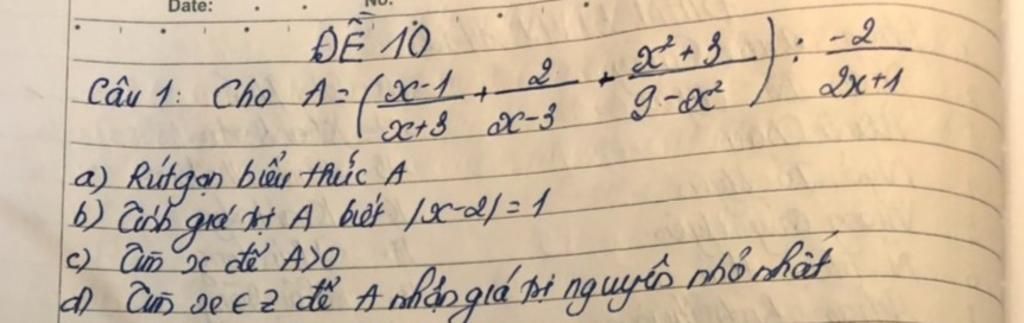 Date: No:
ĐỀ 10
Câu 1: Cho A = (x-1/x+3 + 2/x-3 + x²+3/9-x²) : -2/2x+1
a) Rút gọn biểu thức A
b) Tính giá trị A biết |x-2| = 1
c) Tìm x để A>0
d) Tìm x ∈ Z để A nhận giá trị nguyên nhỏ nhất